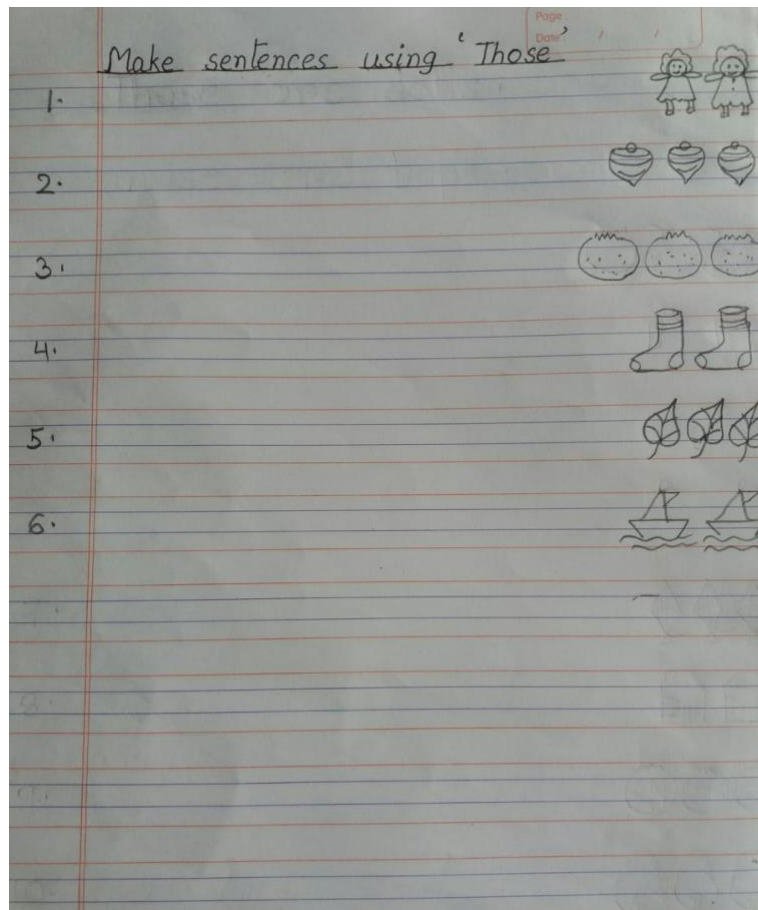 Page :
Date : / /
Make sentences using 'Those'
1.
2.
3.
4.
5.
6.